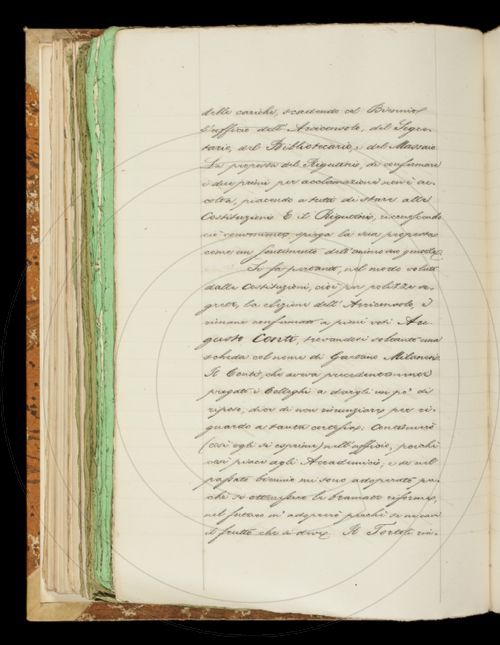 delle cariche, scadendo col Biennio
l'ufficio dell' Arciconsolo, del Segre-
tario, del Bibliotecario, e del Massaio.
La proposta del Rigutini, di confermare
i due primi per acclamazione non è ac-
colta, piacendo a tutti di stare alle
Costituzioni. E il Rigutini, riconoscendo
ciò spiega la sua proposta
come un sentimento dell'animo suo gentile.
Si fa pertanto, nel modo voluto
dalle Costituzioni, cioè per polizze se-
grete, la elezione dell' Arciconsolo, e
rimane confermato a pieni voti Au-
gusto Conti, trovandosi soltanto una
scheda col nome di Gaetano Milanesi.
Il Conti, che aveva precedentemente
pregato i Colleghi a dargli un po' di
riposo, dice di non rinunziare per ri-
guardo a tanta cortesia. Continuerò
(così egli si esprime) nell'ufficio, poichè
così piace agli Accademici, e se nel
passato biennio mi sono adoperato per-
chè si ottenessero le bramate riforme,
nel futuro m' adoprerò perchè se ne cavi
il frutto che si deve. Il Tortoli rin-